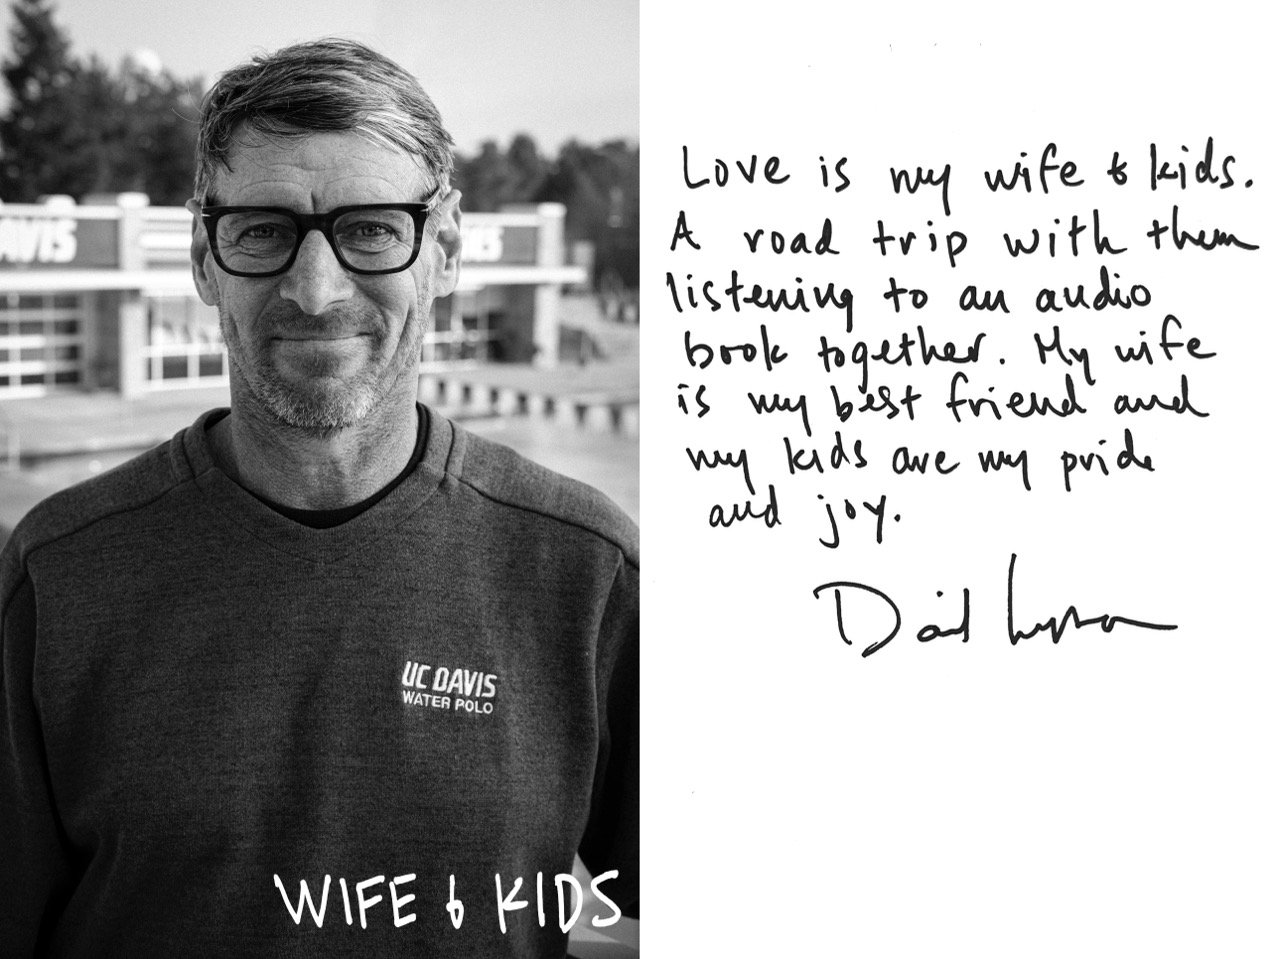 DAVIS
UC DAVIS
WATER POLO
WIFE & KIDS
Love is my wife & kids.
A road trip with them
listening to an audio
book together. My wife
is my best friend and
my kids are my pride
and joy.
David